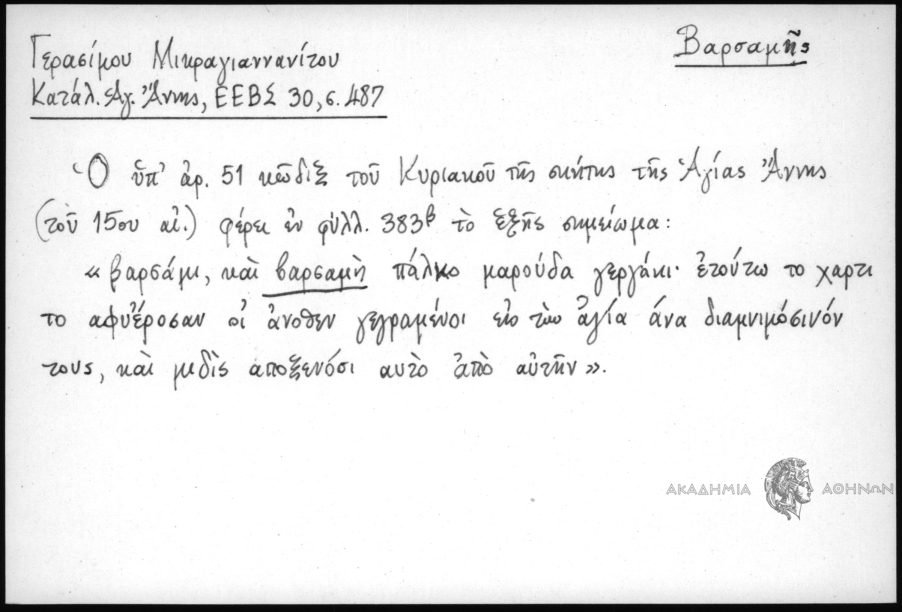 Γερασίμου Μικραγιαννανίτου
Βαρσαμῆς
Κατάλ. Ἁγ. Ἄννης, ΕΕΒΣ 30, σ. 487
Ὁ ὑπ' ἀρ. 51 κῶδιξ τοῦ Κυριακοῦ τῆς σκήτης τῆς Ἁγίας Ἄννης
(τοῦ 15ου αἰ.) φέρει ἐν φύλλ. 383β τὸ ἑξῆς σημείωμα:
« βαρσάμι, καὶ βαρσαμὴ πάλκο μαρούδα γεργάκι· ἐτούτω το χαρτι
το αφυἔροσαν οἱ ἀνοθεν γεγραμένοι εἰσ τὼν ἁγία ἁνα διαμνιμόσινόν
τους, καὶ μεδὶς αποξενόσι αυτὸ ἀπὸ αὐτὴν ».
ΑΚΑΔΗΜΙΑ ΑΘΗΝΩΝ